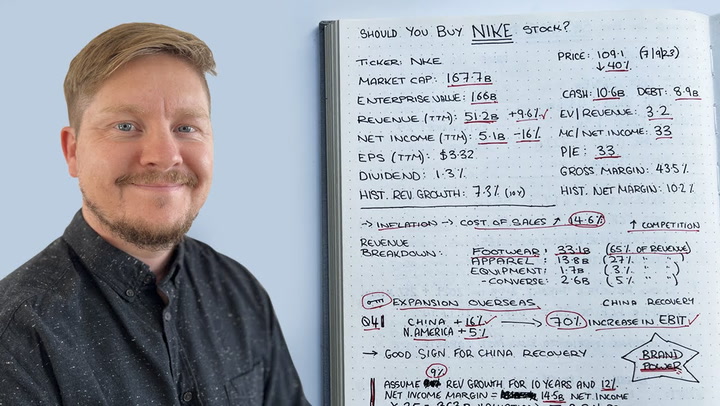 SHOULD YOU BUY NIKE STOCK?
TICKER: NKE
PRICE: 109.1 (7/9/23)
↓ 40%
MARKET CAP: 167.7B
CASH: 10.6B DEBT: 8.9B
ENTERPRISE VALUE: 166B
EV/REVENUE: 3.2
REVENUE (TTM): 51.2B +9.6% ✓
MC/NET INCOME: 33
NET INCOME (TTM): 5.1B -16%
P/E: 33
EPS (TTM): $3.32
GROSS MARGIN: 43.5%
DIVIDEND: 1.3%
HIST. NET MARGIN: 10.2%
HIST. REV GROWTH: 7.3% (10Y)
→ INFLATION → COST OF SALES ↗ 14.6%
↑ COMPETITION
REVENUE BREAKDOWN:
FOOTWEAR: 33.1B (65% OF REVENUE)
APPAREL: 13.8B (27% " ")
EQUIPMENT: 1.7B (3% " ")
-CONVERSE: 2.6B (5% " ")
EXPANSION OVERSEAS
CHINA RECOVERY
Q4 CHINA +16% ✓ → 70% INCREASE IN EBIT ✓
N.AMERICA +5%
→ GOOD SIGN FOR CHINA RECOVERY
BRAND POWER
9%
ASSUME REV GROWTH FOR 10 YEARS AND 12%
NET INCOME MARGIN = 14.5B NET INCOME